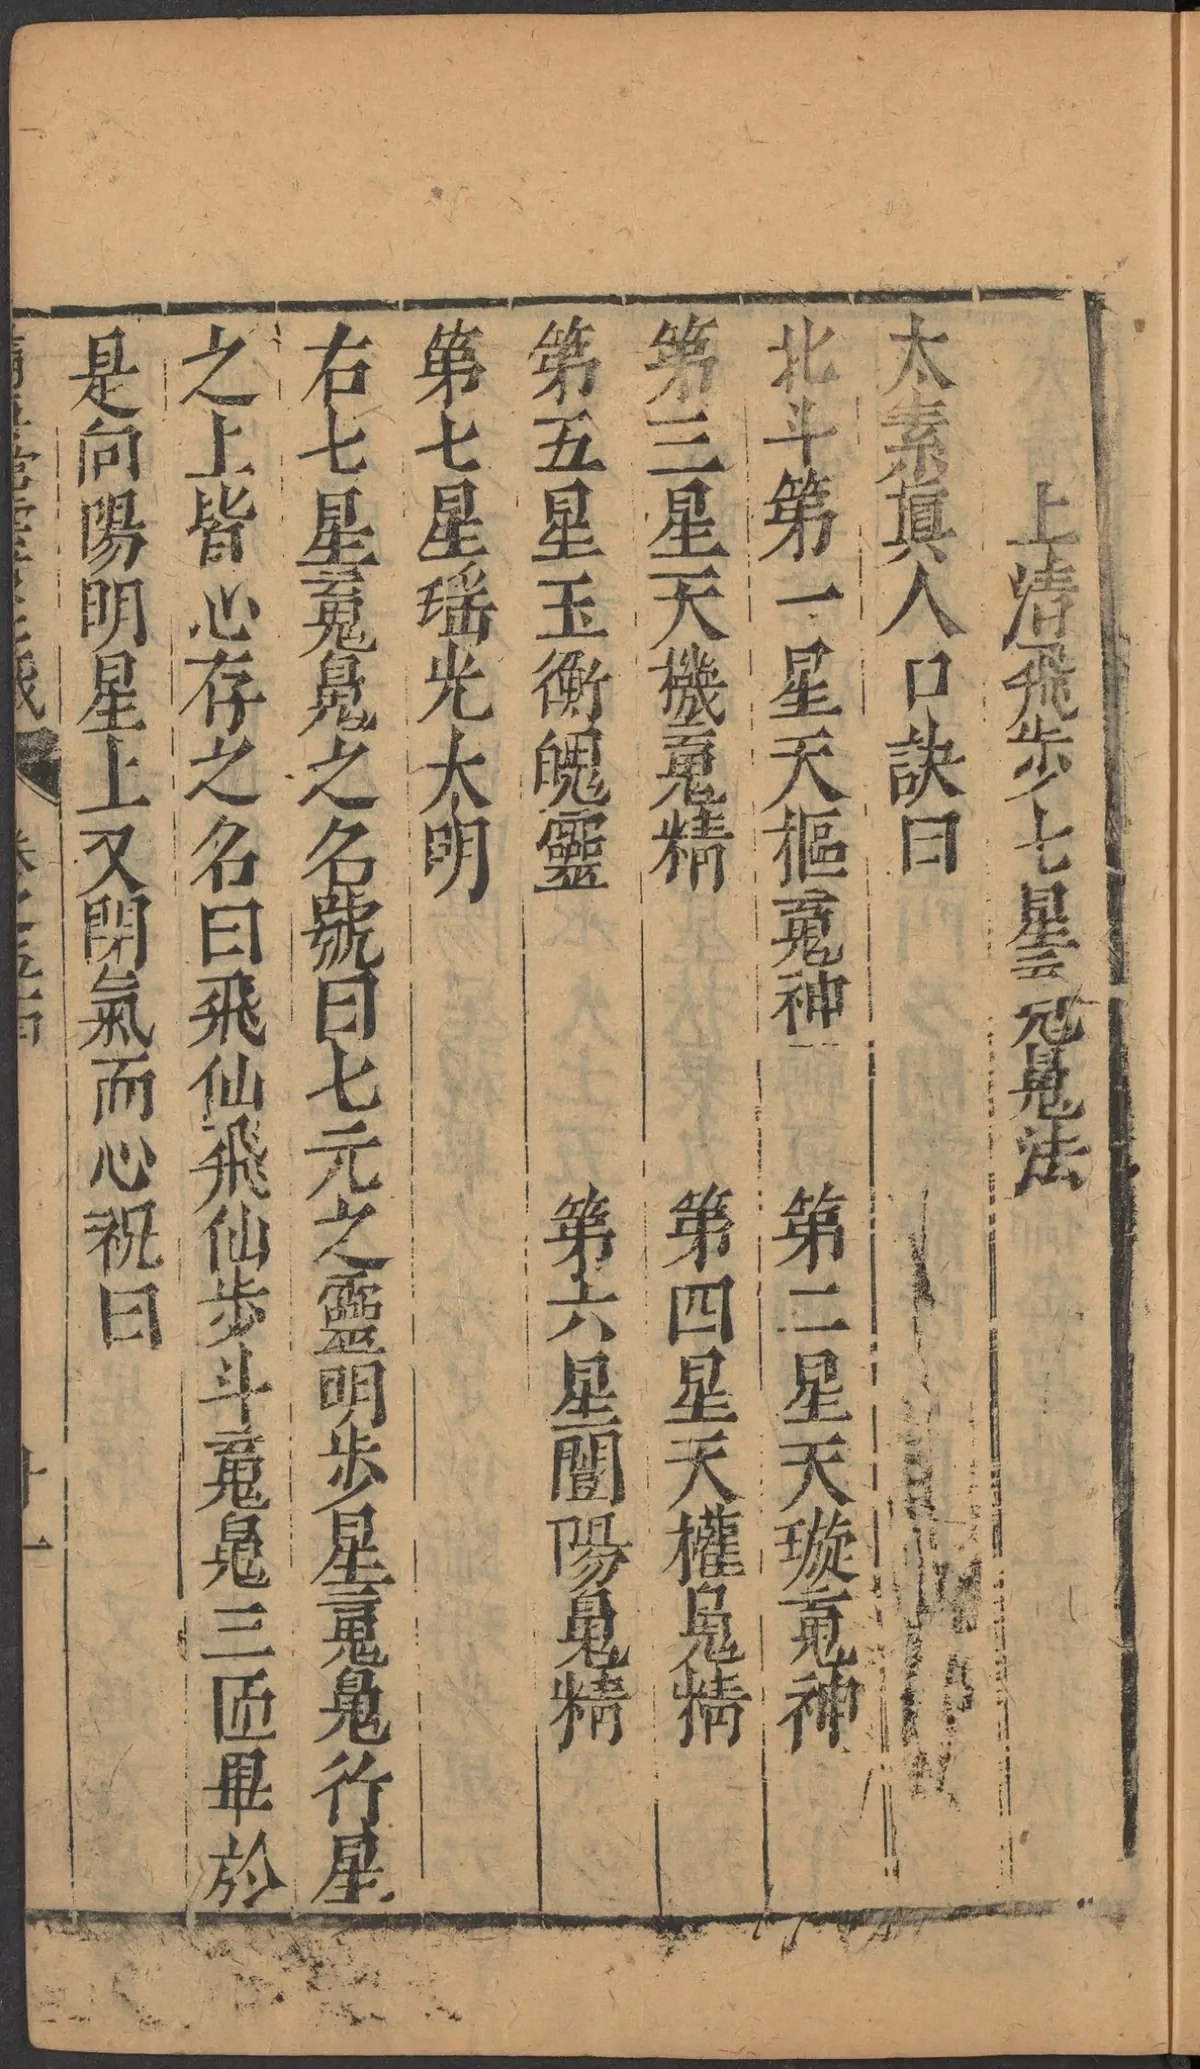 上清飛步七星䰟魄法
太素眞人口訣曰
北斗第一星天樞䰟神　第二星天璇䰟神
第三星天機䰟精　第四星天權魄精
第五星玉衡魄靈　第六星闓陽魄精
第七星瑶光大明
右七星䰟魄之名號曰七元之靈明步星䰟魄行星
之上皆心存之名曰飛仙飛仙步斗䰟魄三匝畢於
是向陽明星上又閉氣而心祝曰
十一